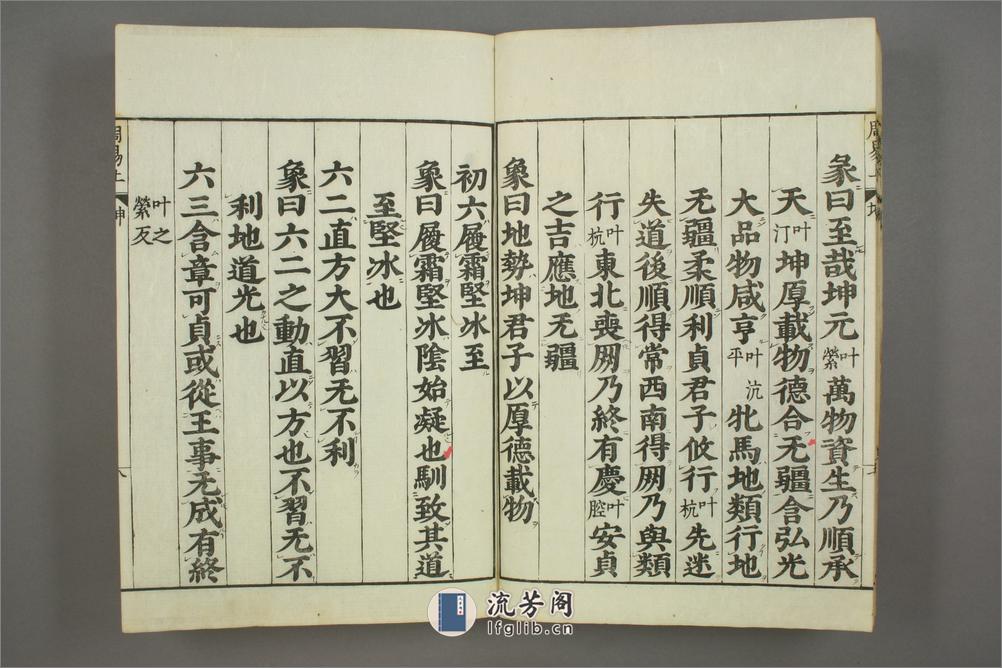 彖曰至哉坤元叶縈萬物資生乃順承
天叶汀坤厚載物德合无疆含弘光
大品物咸亨叶平沆牝馬地類行地
无疆柔順利貞君子攸行叶杭先迷
失道後順得常西南得朋乃與類
行叶杭東北喪朋乃終有慶叶腔安貞
之吉應地无疆
象曰地勢坤君子以厚德載物
初六履霜堅冰至
象曰履霜堅冰陰始凝也馴致其道
至堅冰也
六二直方大不習无不利
象曰六二之動直以方也不習无不
利地道光也
六三含章可貞或從王事无成有終
叶之縈反
周易上
坤
流芳阁
lfglib.cn